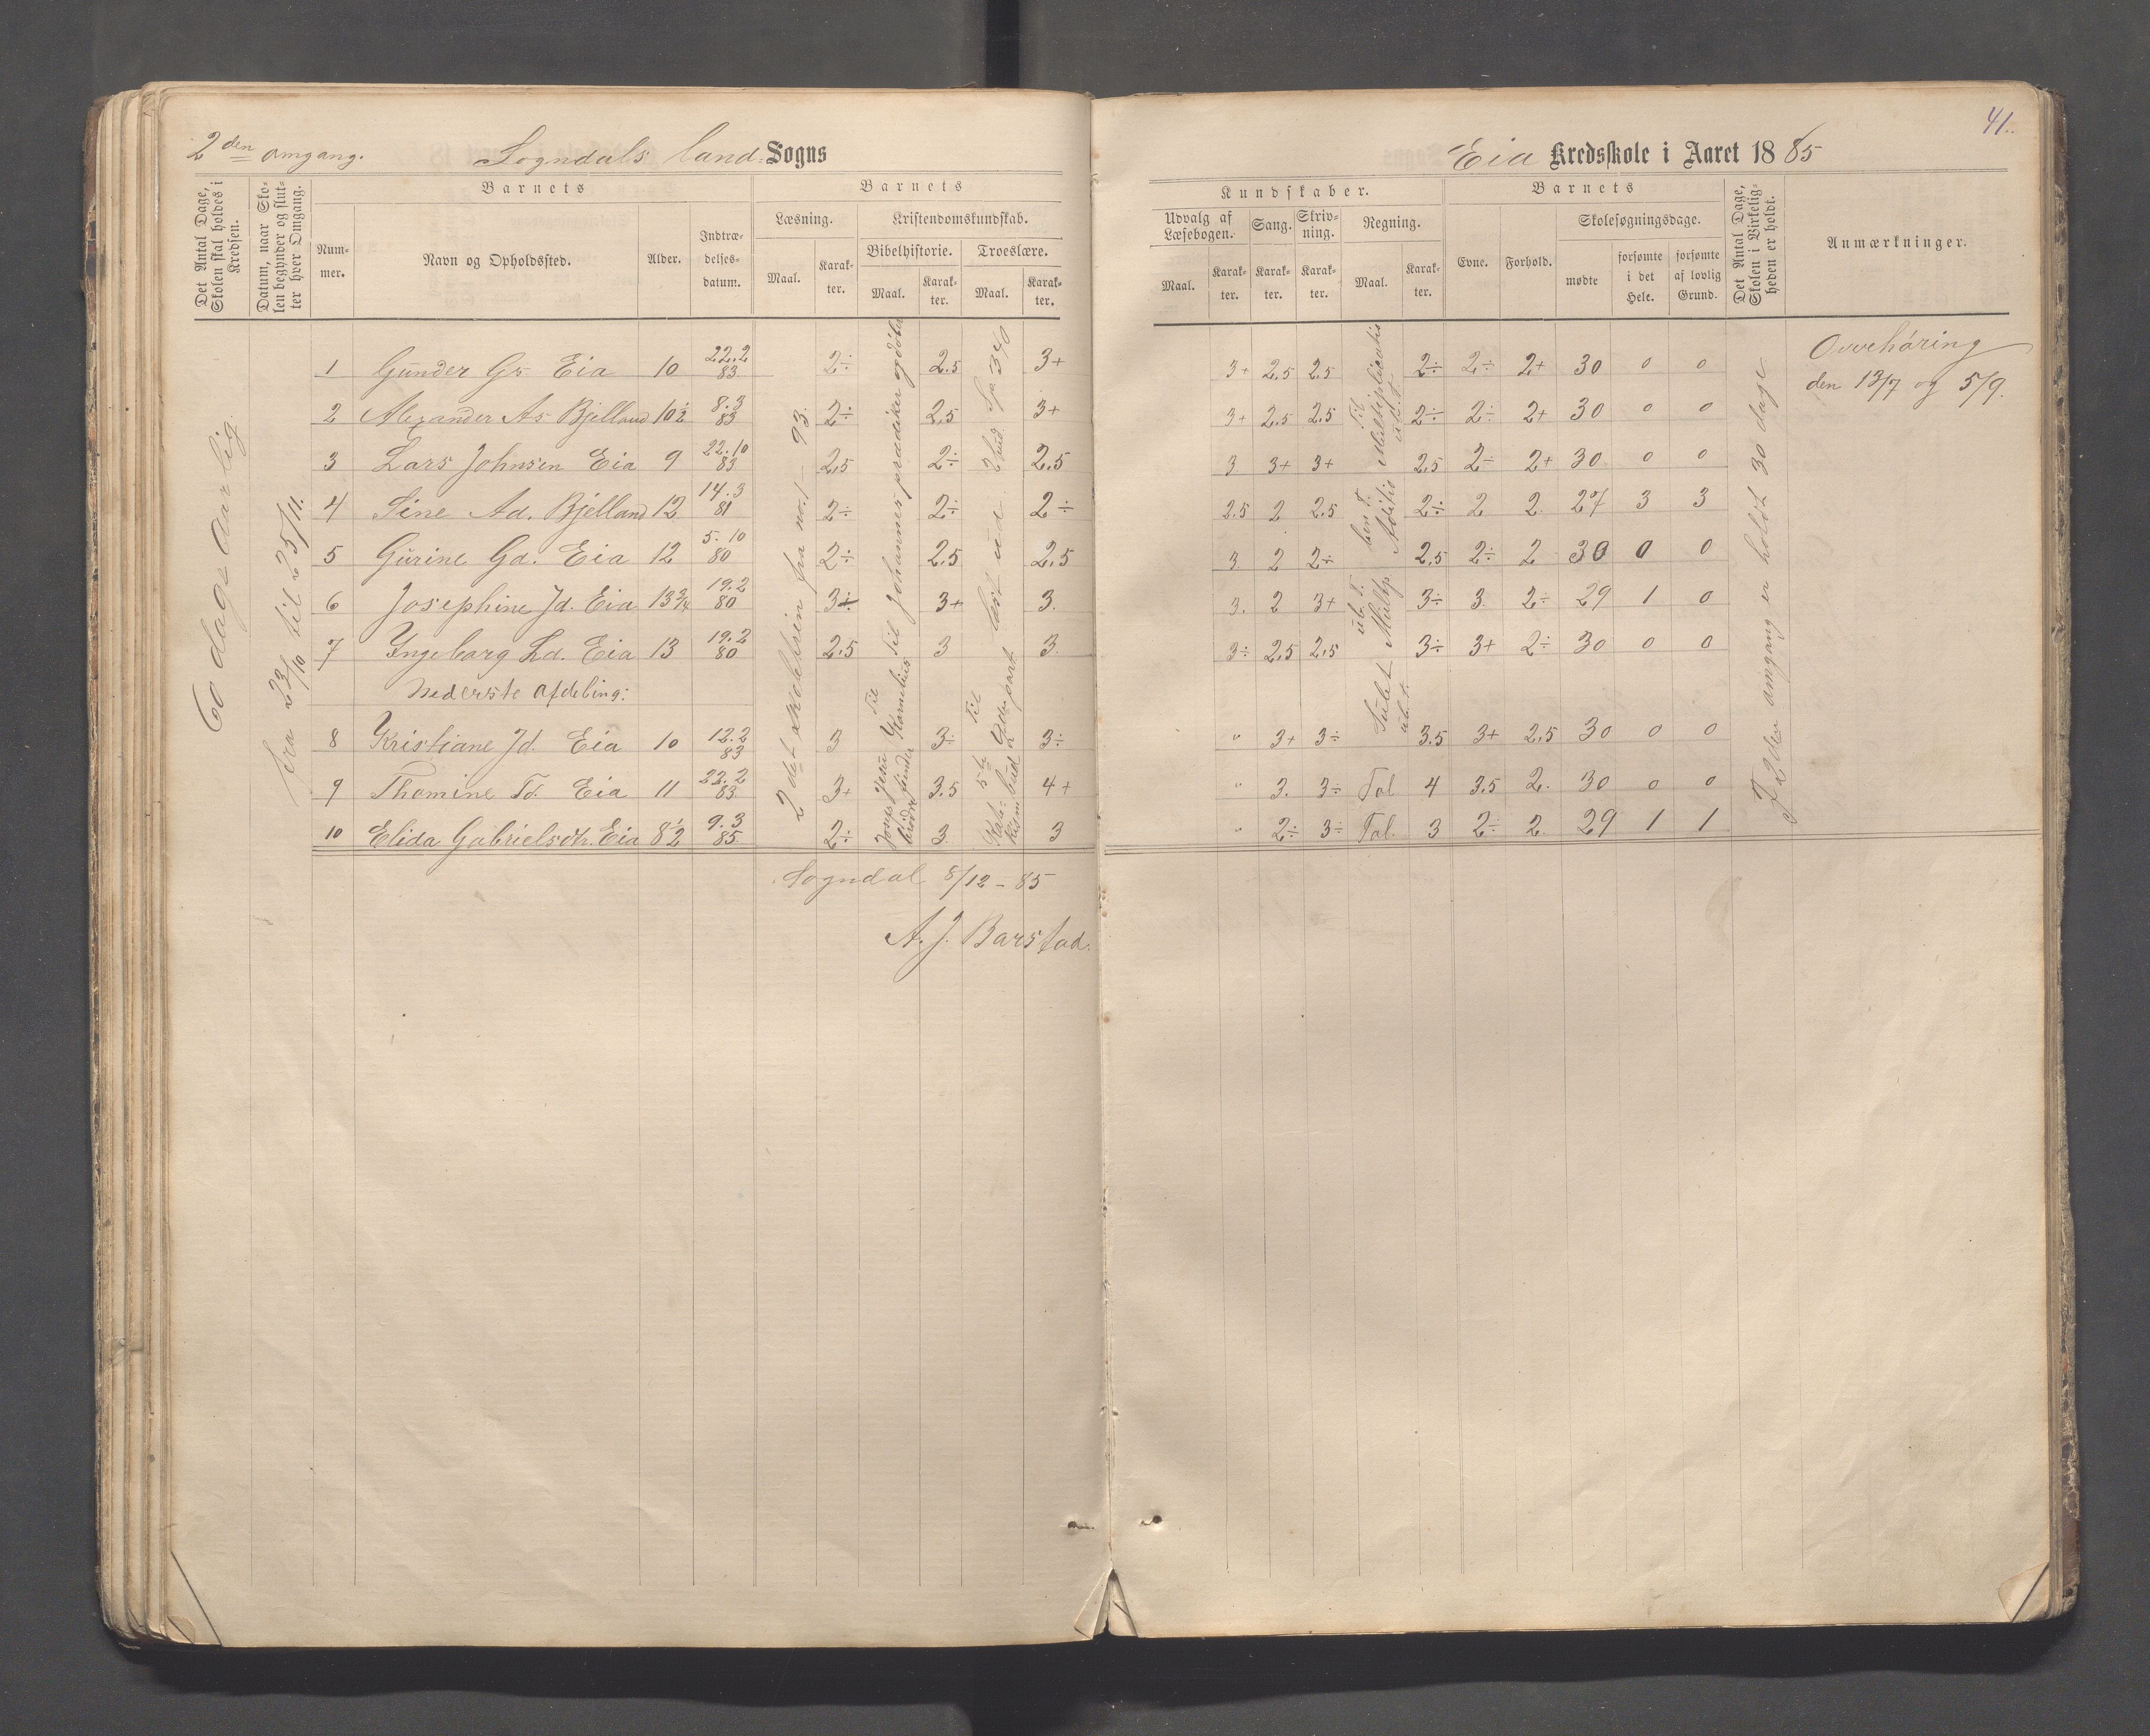 41.
2den omgang. Sogndals land= Sogns
Eia Kredsskole i Aaret 1885
Det Antal Dage, Skolen skal holdes i Kredsen.
Datum, naar Skolen begynder og slutter hver Omgang.
Barnets
Nummer.
Navn og Opholdssted.
Alder.
Indtrædelsesdatum.
Barnets
Læsning.
Maal.
Karakter.
Kristendomskundskab.
Bibelhistorie.
Maal.
Karakter.
Troeslære.
Maal.
Karakter.
Kundskaber.
Udvalg af Læsebogen.
Maal.
Karakter.
Sang.
Karakter.
Skrivning.
Karakter.
Regning.
Maal.
Karakter.
Barnets
Evne.
Forhold.
Skolesøgningsdage.
mødte
forsømte i det Hele.
forsømte af lovlig Grund.
Det Antal Dage, Skolen i Virkeligheden er holdt.
Anmærkninger.
60 dage aarlig.
fra 23/10 til 25/11.
2det skoletrin fra no. 1 – 93.
Til Johannes prædiker og døber
Til Multiplicatio
I 2den omgang er holdt 30 dage
Ovvehøring
den 13/7 og 5/9.
1 Gunder Gs. Eia 10 22.2 83 2÷ 2.5 3+ 3+ 2,5 2.5 2÷ 2÷ 2+ 30 0 0
2 Alexander As Bjelland 10½ 8.3 83 2÷ 2,5 3+ 3+ 2.5 2,5 2÷ 2÷ 2+ 30 0 0
3 Lars Johnsen Eia 9 22.10 83 2,5 2÷ 2,5 3 3+ 3+ 2,5 2÷ 2+ 30 0 0
4 Sine Ad. Bjelland 12 14.3 81 2÷ 2÷ 2÷ 2.5 2 2.5 2÷ 2 2. 27 3 3
5 Gurine Gd. Eia 12 5.10 80 2÷ 2.5 2,5 3 2 2÷ 2,5 2÷ 2 30 0 0
6 Josephine Jd. Eia 13¾ 19.2 80 3÷ 3+ 3. 3. 2 3+ 3÷ 3. 2÷ 29 1 0
7 Ingeborg Ld. Eia 13 19.2 80 2,5 3 3. 3÷ 2,5 2,5 3÷ 3+ 2÷ 30 0 0
Nederste Afdeling:
8 Kristiane Jd. Eia 10 12.2 83 3 3÷ 3÷ " 3+ 3÷ 3.5 3+ 2,5 30 0 0
9 Thomine Td. Eia 11 22.2 83. 3+ 3.5 4+ " 3. 3÷ Tal 4 3.5 2. 30 0 0
10 Elida Gabrielsdtr. Eia 8½ 9.3 85. 2÷ 3. 3 " 2÷ 3÷ Tal. 3 2÷ 2. 29 1 1
Sogndal 8/12 – 85
A. J. Barstad.